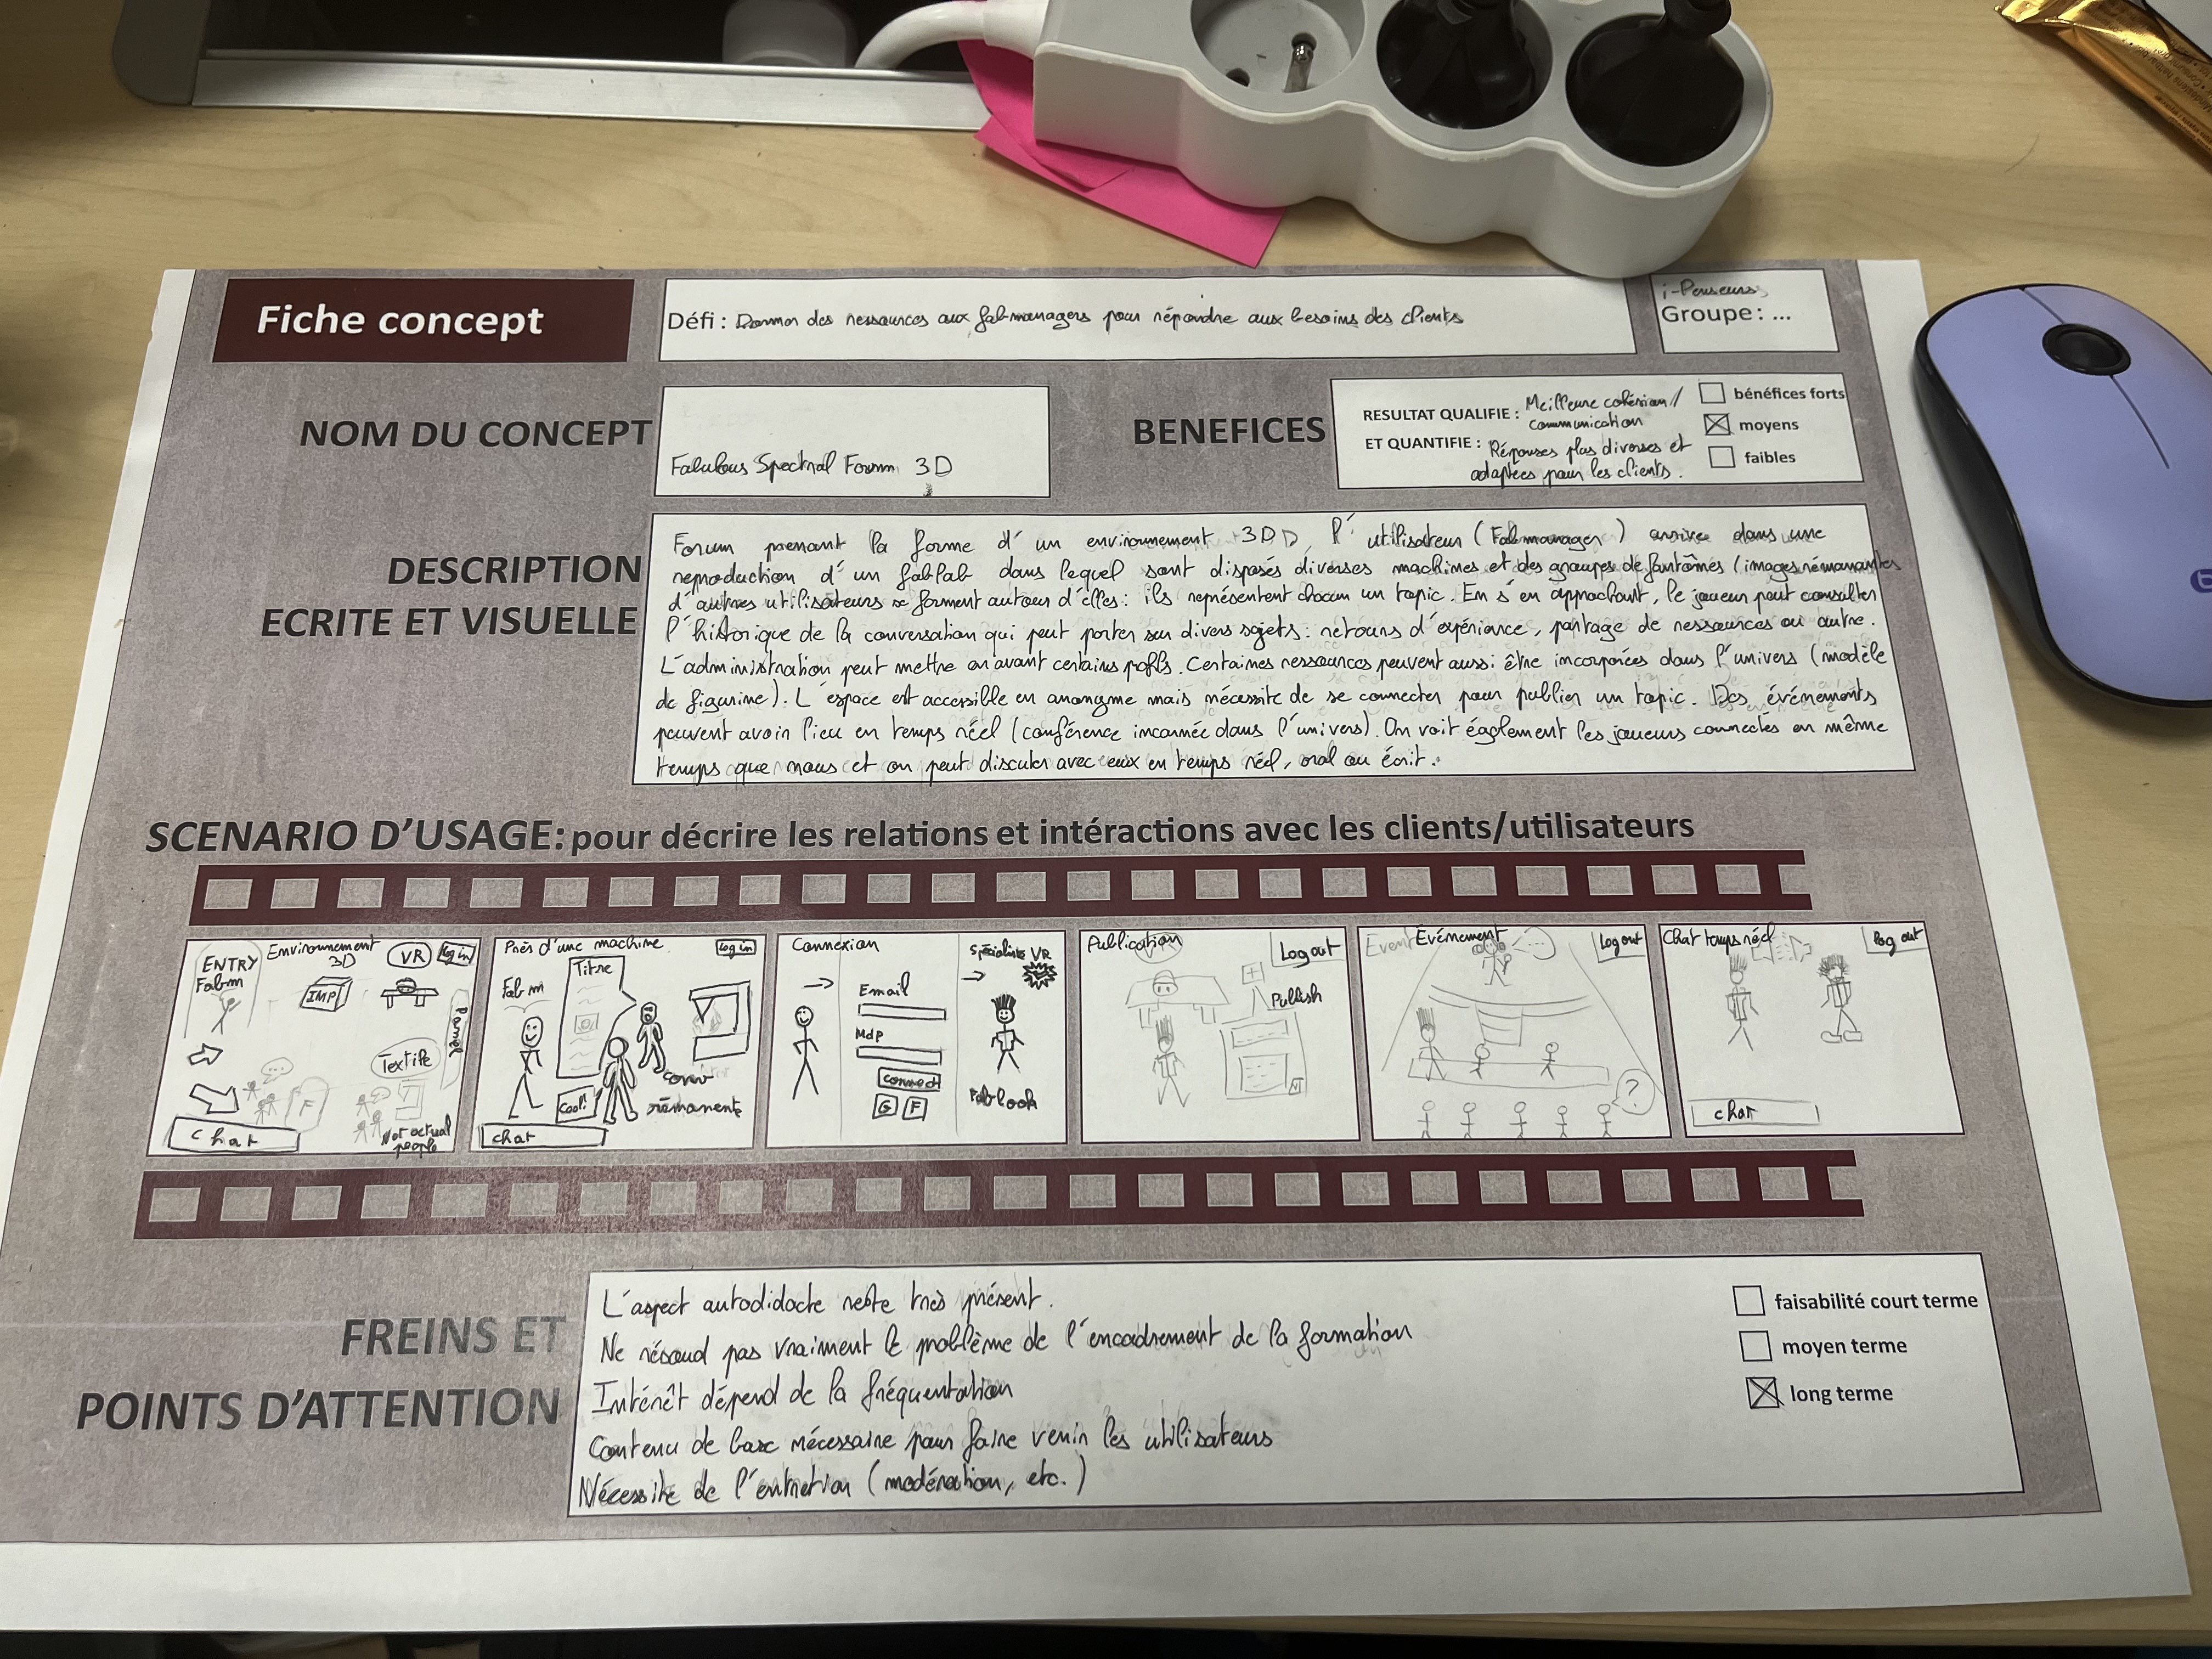 Fiche concept
Défi : Donner des ressources aux fab-managers pour répondre aux besoins des clients
i-Penseurs
Groupe : ...
NOM DU CONCEPT
Fabulous Spectral Forum 3D
BENEFICES
RESULTAT QUALIFIE : Meilleure cohésion/
communication
ET QUANTIFIE : Réponses plus diverses et
adaptées pour les clients.
bénéfices forts
moyens
faibles
DESCRIPTION
ECRITE ET VISUELLE
Forum prenant la forme d'un environnement 3D, l'utilisateur (Fabmanager) arrive dans une
reproduction d'un fablab dans lequel sont disposés diverses machines et des groupes de fantômes (images rémanantes
d'autres utilisateurs se forment autour d'elles : ils représentent chacun un topic. En s'en approchant, le joueur peut consulter
l'historique de la conversation qui peut porter sur divers sujets : retours d'expériance, partage de ressources ou autre.
L'administration peut mettre en avant certains profils. Certaines ressources peuvent aussi être incorporées dans l'univers (modèle
de figurine). L'espace est accessible en anonyme mais nécessite de se connecter pour publier un topic. Des événements
peuvent avoir lieu en temps réel (conférence incarnée dans l'univers). On voit également les joueurs connectés en même
temps que nous et on peut discuter avec eux en temps réel, oral ou écrit.
SCENARIO D'USAGE: pour décrire les relations et intéractions avec les clients/utilisateurs
ENTRY
Fabm
Environnement
3D
VR
Log in
IMP
Pannel
Textile
F
Not actual
people
chat
Près d'une machine
Log in
Titre
Fab m
Cool!
rémanente
chat
Connexion
Email
MdP
connect
G F
Spécialiste VR
Fab look
Publication
Log out
Publish
Événement
Log out
?
Chat temps réel
Log out
chat
FREINS ET
POINTS D'ATTENTION
L'aspect autodidacte reste très présent.
Ne résoud pas vraiment le problème de l'encadrement de la formation
Intérêt dépend de la fréquentation
Contenu de base nécessaire pour faire venir les utilisateurs
Nécessite de l'entretien (modération, etc.)
faisabilité court terme
moyen terme
long terme